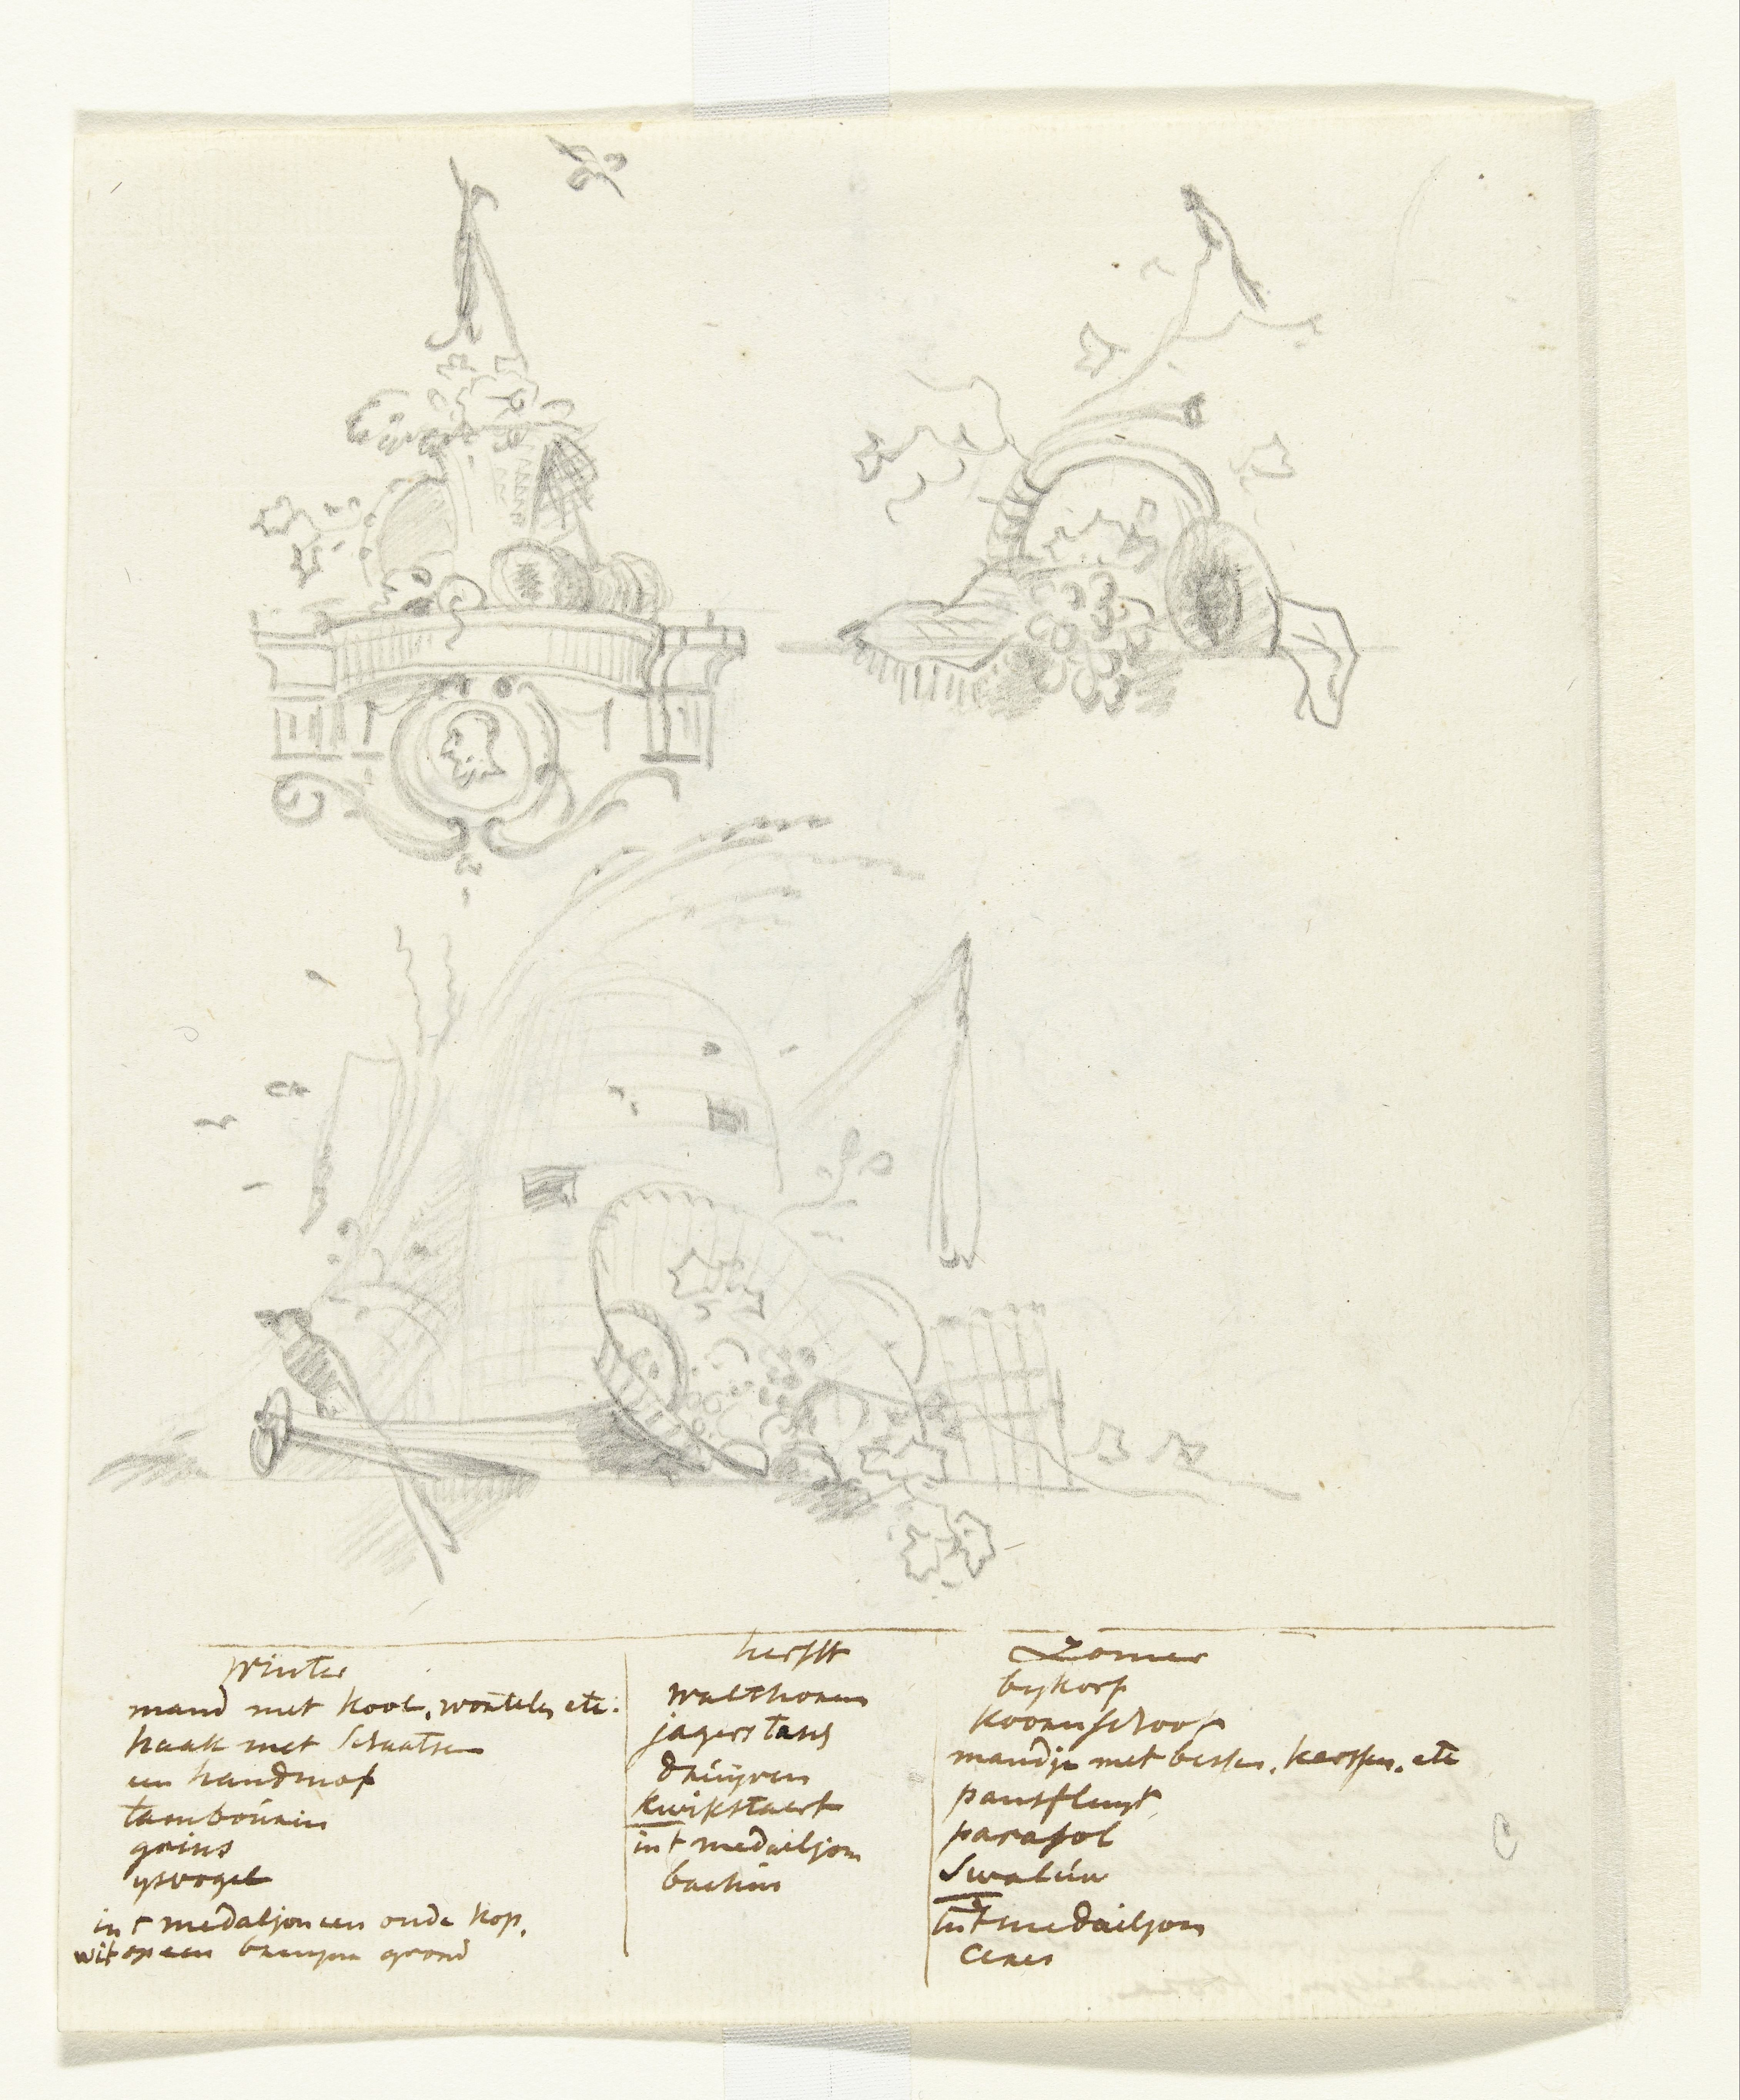 winter
mand met kool, wortelen etc:
haak met Schaatsen
een handmof
tambourin
grins
ysvogel
int medaljon een oude kop,
wit op een bruyne grond
herfst
walthoren
jagers tasch
druyven
kwikstaert
int medailjon
bachus
Zomer
bykorf
koornschoof
mandje met bessen, kerssen, etc
pansfluyt
parasol
Swaluw
int medailjon
Ceres